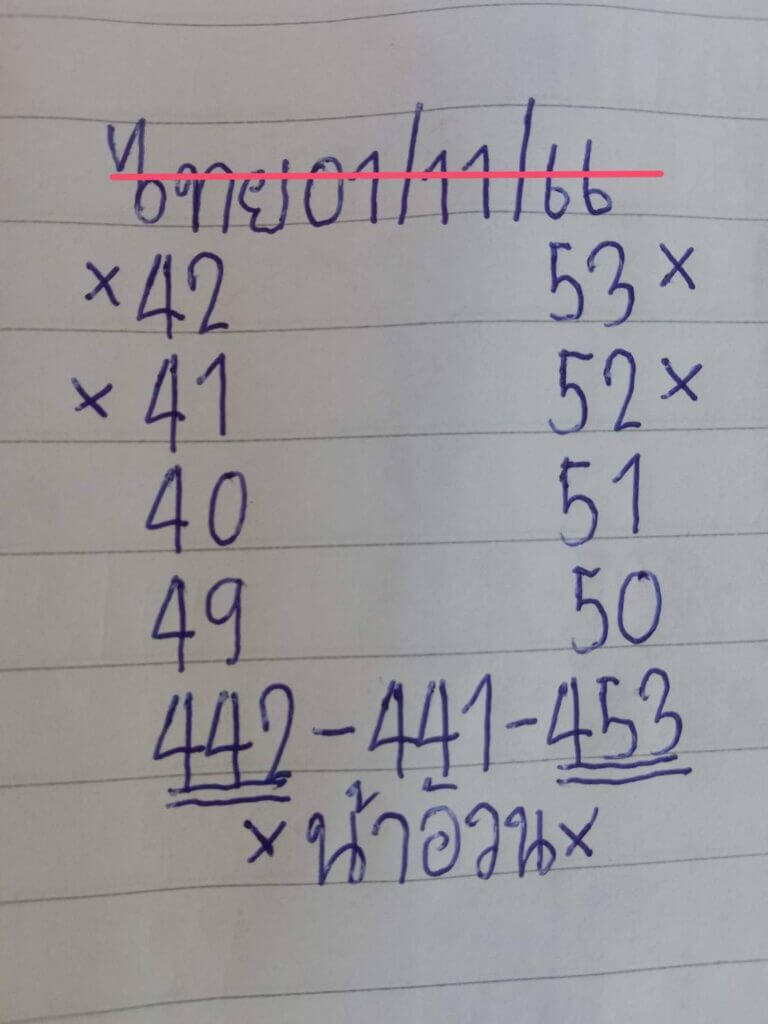 ไทย01/11/66
×42 53×
×41 52×
40 51
49 50
442-441-453
×น้าอ้วน×